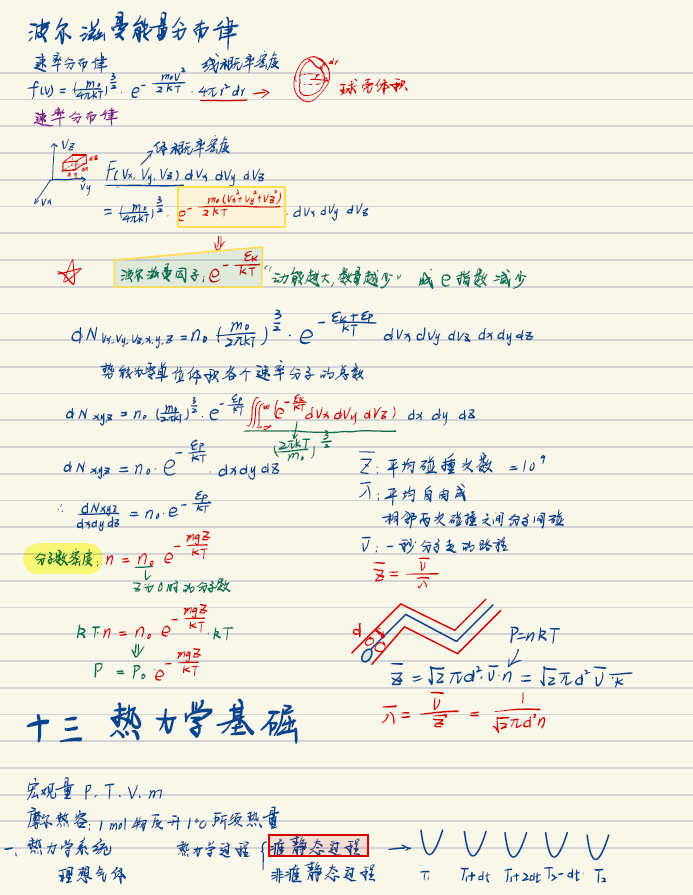 波尔滋曼能量分布律
速率分布律 线概率密度
f(v) = (m₀/4πkT)^(3/2) · e^(-m₀v²/2kT) · 4πr²dr → 球壳体积
dr
r
速率分布律
体概率密度
Vz Vy Vx
dz dx dy
F(Vx, Vy, Vz) dVx dVy dVz
= (m₀/4πkT)^(3/2) · e^(-m₀(Vx²+Vy²+Vz²)/2kT) · dVx dVy dVz
⇓
☆ 波尔滋曼因子: e^(-εk/kT) "动能越大,数量越少" 成 e 指数减少
dN Vx,Vy,Vz,x,y,z = n₀ (m₀/2πkT)^(3/2) · e^(-(εk+εp)/kT) dVx dVy dVz dx dy dz
势能为零单位体积各个速率分子的总数
dN xyz = n₀ (m₀/2πkT)^(3/2) · e^(-εp/kT) ∭_{-∞}^{∞} (e^(-εk/kT) dVx dVy dVz) dx dy dz
(2πkT/m₀)^(3/2)
dN xyz = n₀ · e^(-εp/kT) · dx dy dz
∴ dNxyz/dxdydz = n₀ · e^(-εp/kT)
分子数密度: n = n₀ e^(-mgz/kT)
z为0时的分子数
kTn = n₀ e^(-mgz/kT) · kT
⇓
P = P₀ · e^(-mgz/kT)
z̄: 平均碰撞次数 = 10⁹
λ̄: 平均自由程
相邻两次碰撞之间分子间碰
v̄: 一秒分子走的路程
z̄ = v̄/λ̄
d
P=nkT
z̄ = √2πd²·v̄·n = √2πd² v̄ k
λ̄ = v̄/z̄ = 1/(√2πd²n)
十三 热力学基础
宏观量 P. T. V. m
摩尔热容: 1 mol 物质升 1℃ 所须热量
一、热力学系统 热力学过程 { 准静态过程 → T₁ T₁+dt T₁+2dt T₂-dt T₂
理想气体 非准静态过程